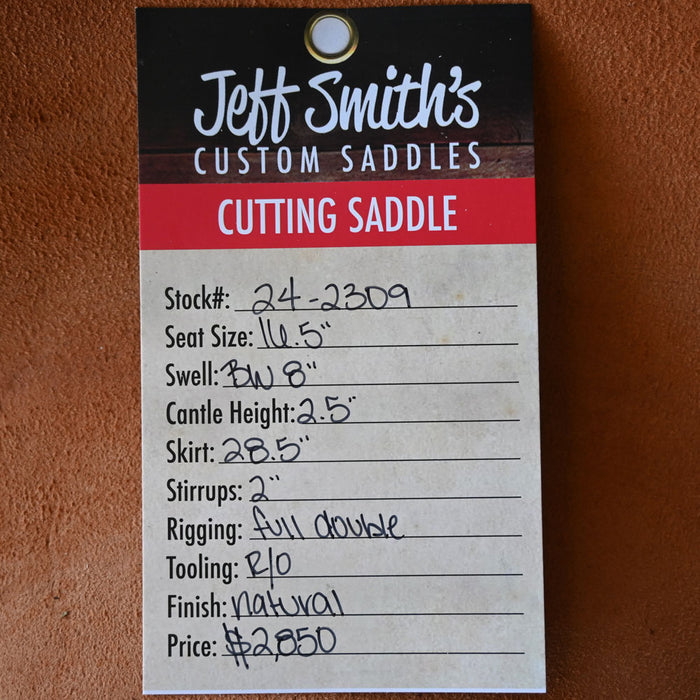 Jeff Smith's
CUSTOM SADDLES
CUTTING SADDLE
Stock#: 24-2309
Seat Size: 16.5"
Swell: BW 8"
Cantle Height: 2.5"
Skirt: 28.5"
Stirrups: 2"
Rigging: full double
Tooling: R/O
Finish: natural
Price: $2,850